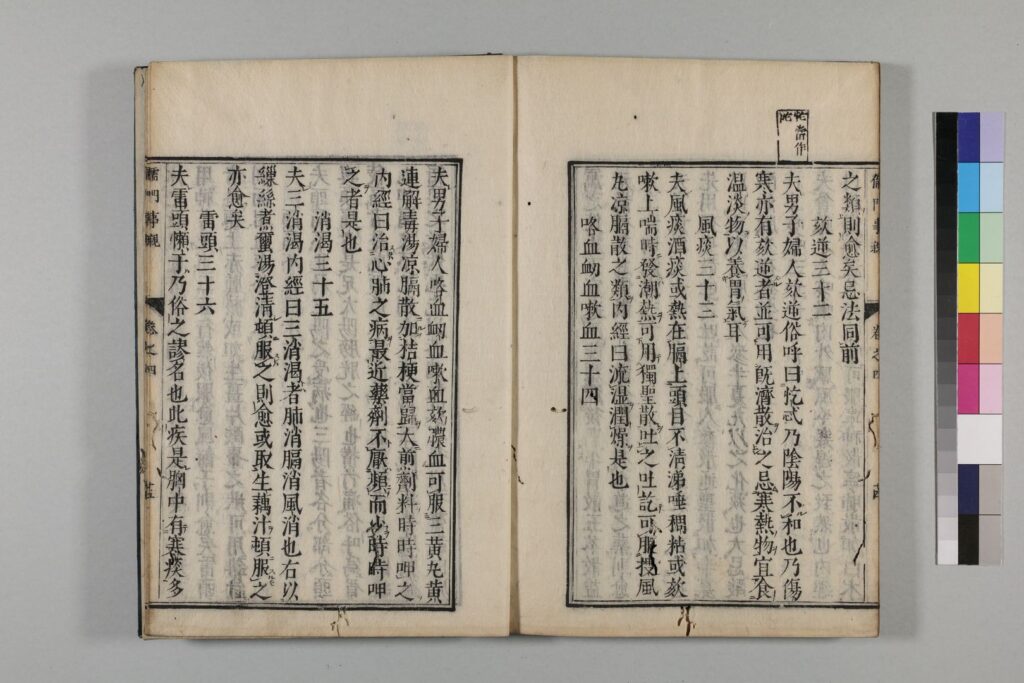 之類則愈矣忌法同前
欬逆三十二
夫男子婦人欬逆俗呼曰吃忒乃陰陽不和也乃傷
寒亦有欬逆者並可用旣濟散治之忌寒熱物宜食
温淡物以養胃氣耳
風痰三十三
夫風痰酒痰或熱在膈上頭目不清涕唾稠粘或欬
嗽上喘時發潮熱可用獨聖散吐之吐訖可服搜風
丸凉膈散之類内經曰流濕潤燥是也
咯血衂血嗽血三十四
夫男子婦人咯血衂血嗽血欬膿血可服三黄丸黄
連解毒湯凉膈散加桔梗當歸大煎劑料時時呷之
内經曰治心肺之病最近藥劑不厭頻而少時時呷
之者是也
消渴三十五
夫三消渴内經曰三消渴者肺消膈消風消也右以
繅絲煮蠒湯澄清頓服之則愈或取生藕汁頓服之
亦愈矣
雷頭三十六
夫雷頭懶于乃俗之謬名也此疾是胸中有寒痰多
儒門事親
卷之四